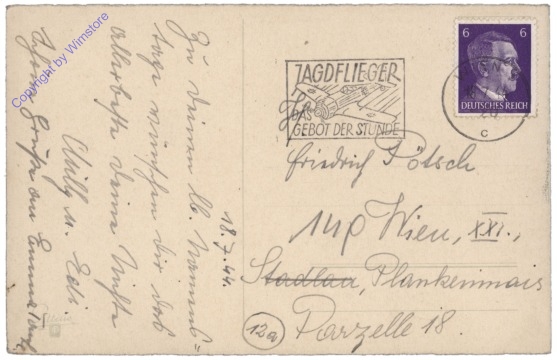 Copyright by Wimstore
Zu Deinem lb. Namens=
tage wünschen dir das
allerbeste deine Nichte
Willy u. Edi
Schöne Grüße an Emma Tant
18.7.44.
JAGDFLIEGER
DAS
GEBOT DER STUNDE
6 6
DEUTSCHES REICH
c
Friedrich Pötsch
Wien, XXI.,
Stadlau, Plankenmais
Parzelle 18.
12a